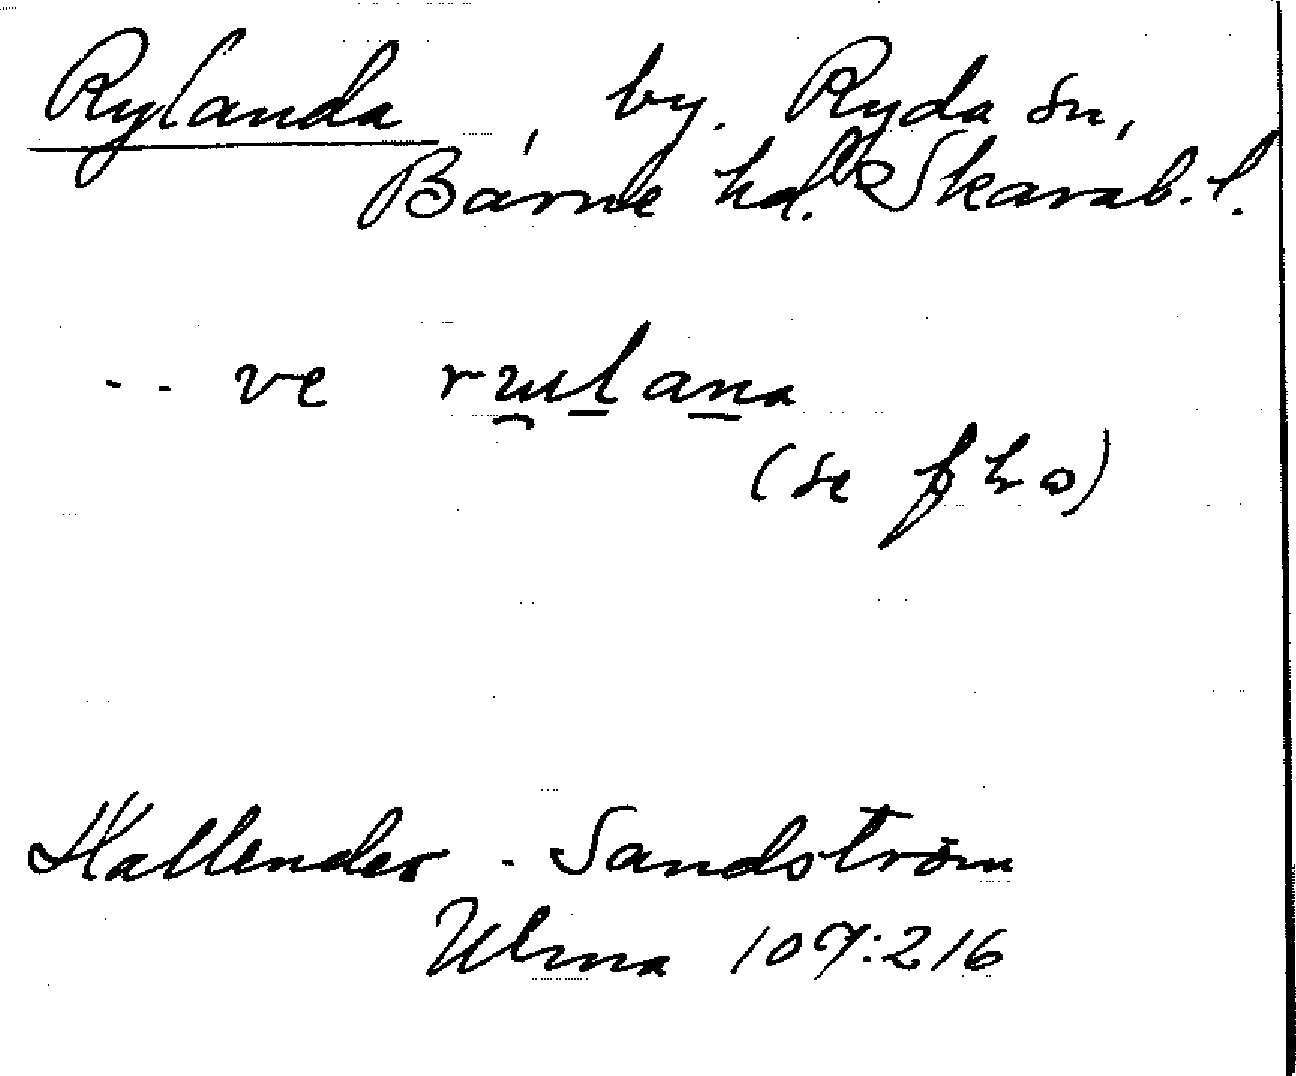 Rylanda, by. Ryda sn,
Barne hd. Skarab. l.
-- ve rulana
(se f h o)
Hallender - Sandström
Ulma 109:216